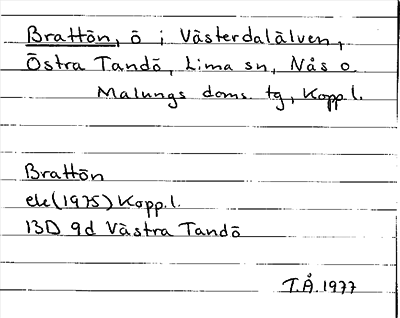 Brattön, ö i Västerdalälven,
Östra Tandö, Lima sn, Nås o
Malungs doms. tg, Kopp. l.
Brattön
ek (1975) Kopp. l.
13D 9d Västra Tandö
T.Å. 1977